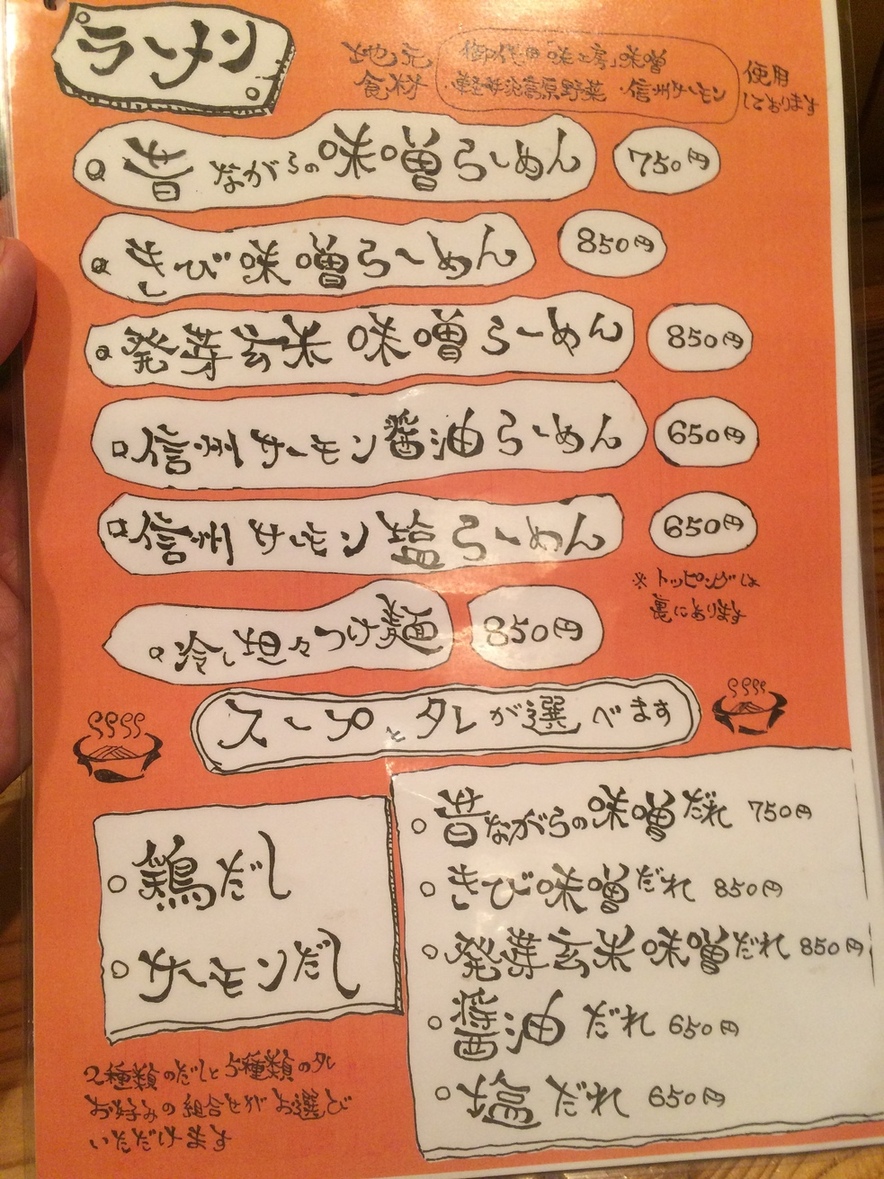 ラーメン
地元食材
御代田「味工房」味噌
・軽井沢高原野菜 ・信州サーモン
使用しております
昔ながらの味噌らーめん 750円
きび味噌らーめん 850円
発芽玄米味噌らーめん 850円
信州サーモン醤油らーめん 650円
信州サーモン塩らーめん 650円
※トッピングは
裏にあります
冷し坦々つけ麺 850円
スープとタレが選べます
○鶏だし
○サーモンだし
○昔ながらの味噌だれ 750円
○きび味噌だれ 850円
○発芽玄米味噌だれ 850円
○醤油だれ 650円
○塩だれ 650円
2種類のだしと5種類のタレ
お好みの組合せがお選び
いただけます